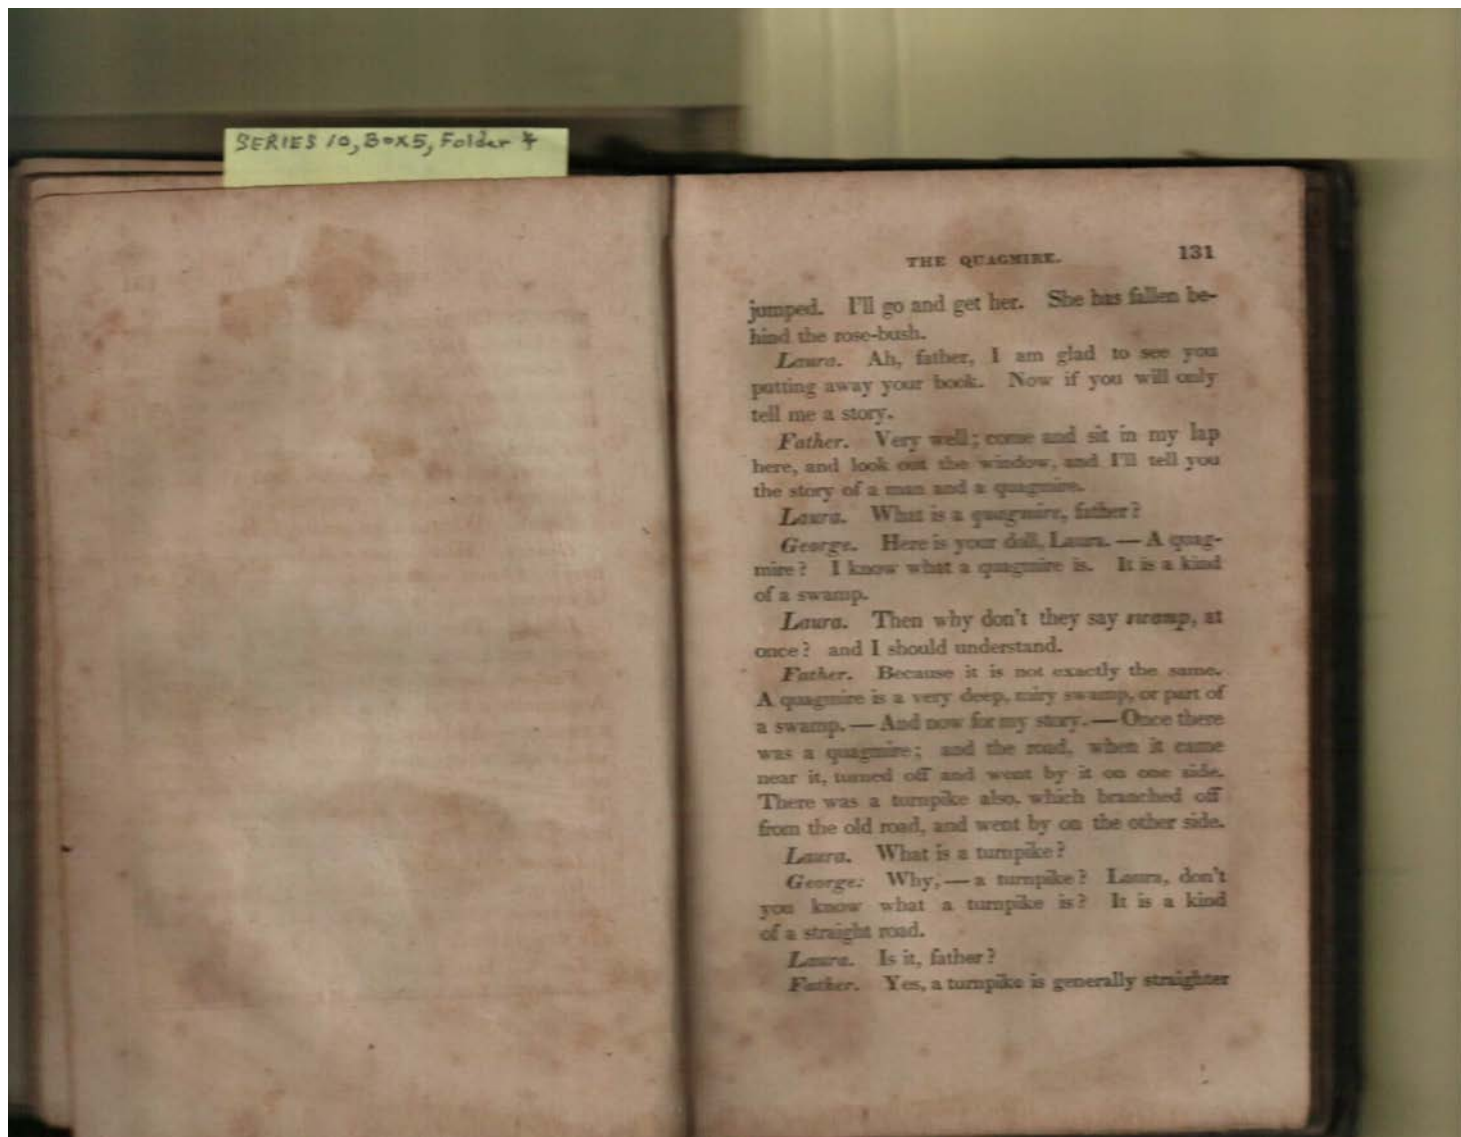 SERIES 10, Box 5, Folder 4
THE QUAGMIRE. 131
jumped. I'll go and get her. She has fallen be-
hind the rose-bush.
Laura. Ah, father, I am glad to see you
putting away your book. Now if you will only
tell me a story.
Father. Very well; come and sit in my lap
here, and look out the window, and I'll tell you
the story of a man and a quagmire.
Laura. What is a quagmire, father?
George. Here is your doll, Laura. — A quag-
mire? I know what a quagmire is. It is a kind
of a swamp.
Laura. Then why don't they say swamp, at
once? and I should understand.
Father. Because it is not exactly the same.
A quagmire is a very deep, miry swamp, or part of
a swamp. — And now for my story. — Once there
was a quagmire; and the road, when it came
near it, turned off and went by it on one side.
There was a turnpike also, which branched off
from the old road, and went by on the other side.
Laura. What is a turnpike?
George. Why, — a turnpike? Laura, don't
you know what a turnpike is? It is a kind
of a straight road.
Laura. Is it, father?
Father. Yes, a turnpike is generally straighter